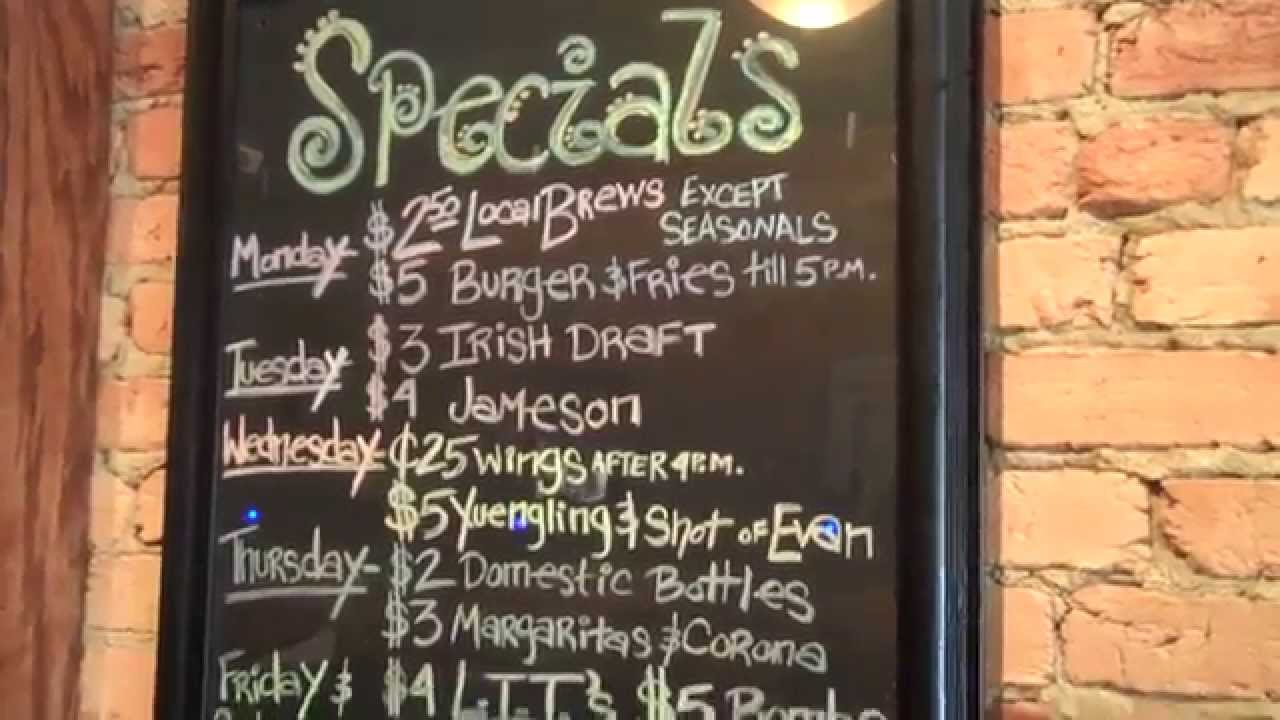 Specials
Monday- $2.50 Local Brews EXCEPT SEASONALS
$5 Burger & Fries till 5 P.M.
Tuesday- $3 Irish Draft
$4 Jameson
Wednesday- ¢25 Wings AFTER 4 P.M.
$5 Yuengling & Shot of Evan
Thursday- $2 Domestic Bottles
$3 Margaritas & Corona
Friday & $4 L.I.T.'s $5 Bombs